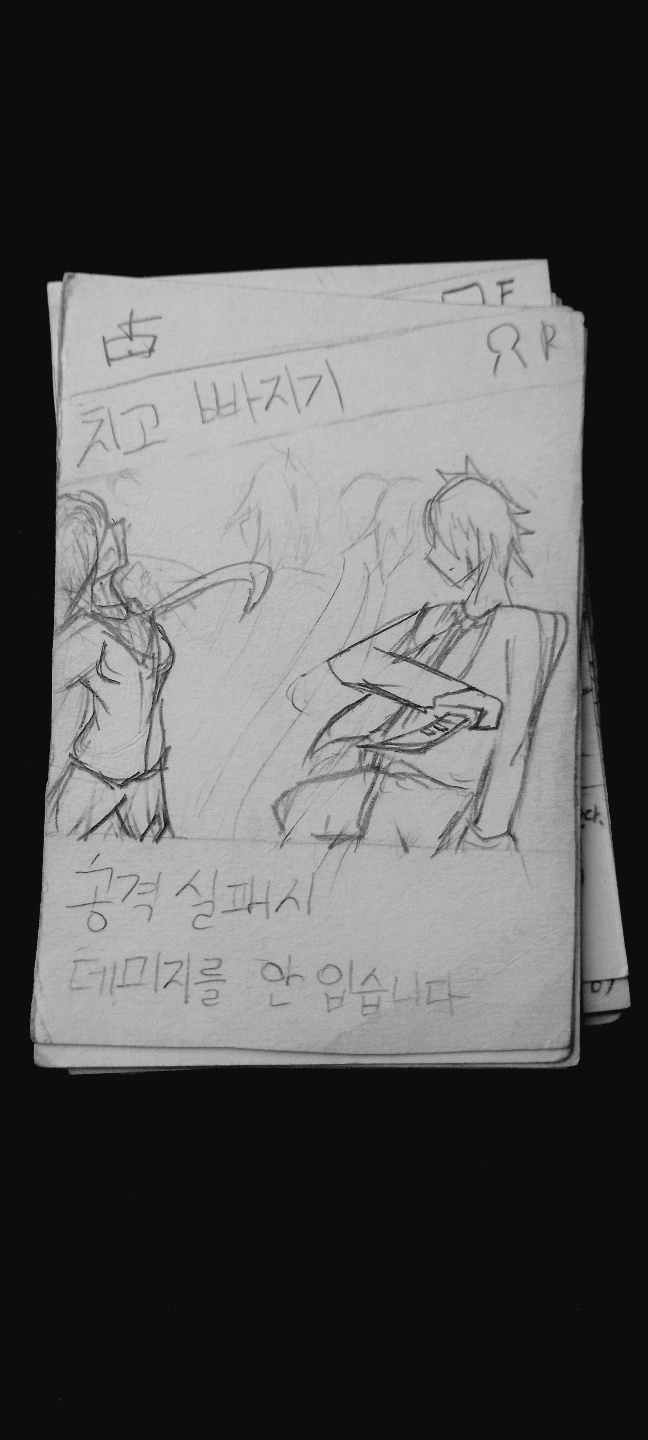 R
치고 빠지기
공격 실패시
데미지를 안 입습니다